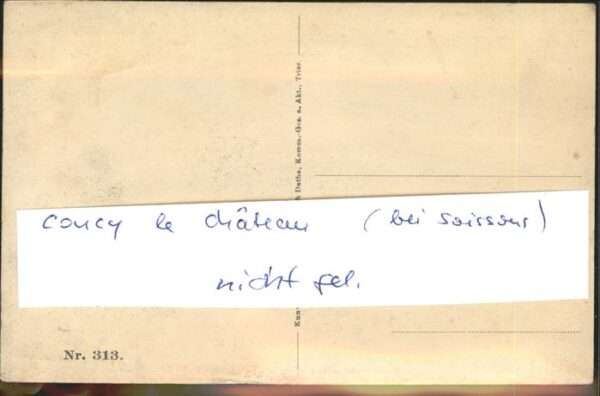 coucy le château (bei soissons)
nicht gel.
Kun
h Dutha, Komm.-Ges. a. Akt., Trier.
Nr. 313.